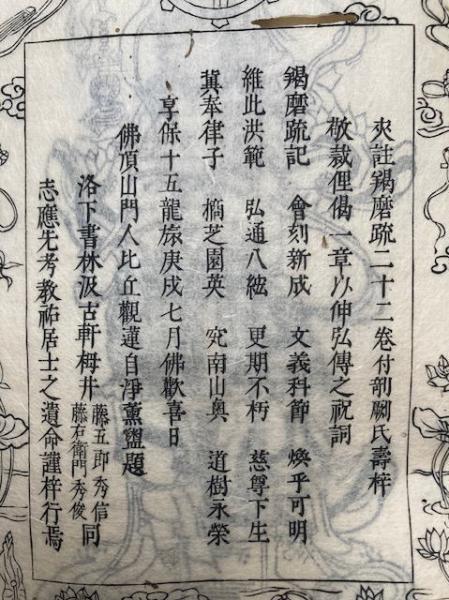 夾註羯磨疏二十二卷付剞劂氏壽梓
敬裁俚偈一章以伸弘傳之祝詞
羯磨疏記 會刻新成 文義科節 煥乎可明
維此洪範 弘通八紘 更期不朽 慈尊下生
冀奉律子 摛芝園英 究南山奧 道樹永榮
享保十五龍旅庚戌七月佛歡喜日
佛頂山門人比丘觀蓮自淨薰盥題
洛下書林汲古軒栂井藤五郎秀信藤右衛門秀俊同
志應先考教祐居士之遺命謹梓行焉